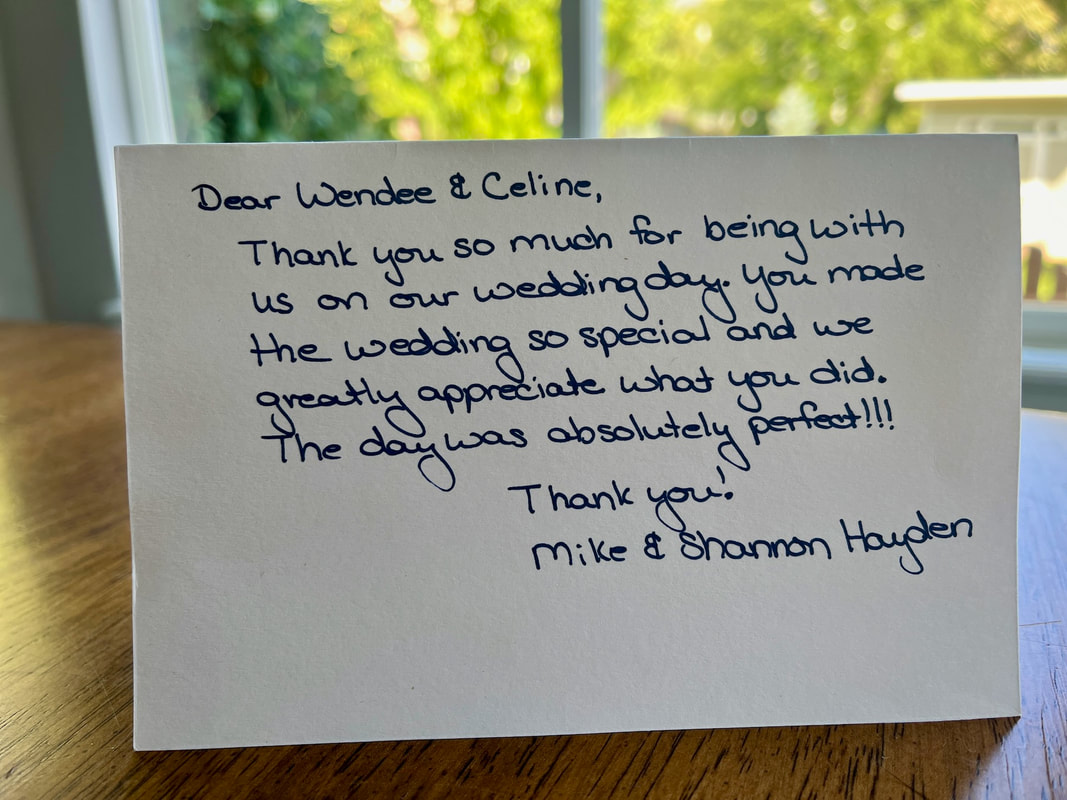 Dear Wendee & Celine,
Thank you so much for being with
us on our wedding day. You made
the wedding so special and we
greatly appreciate what you did.
The day was absolutely perfect!!!
Thank you!
Mike & Shannon Hayden